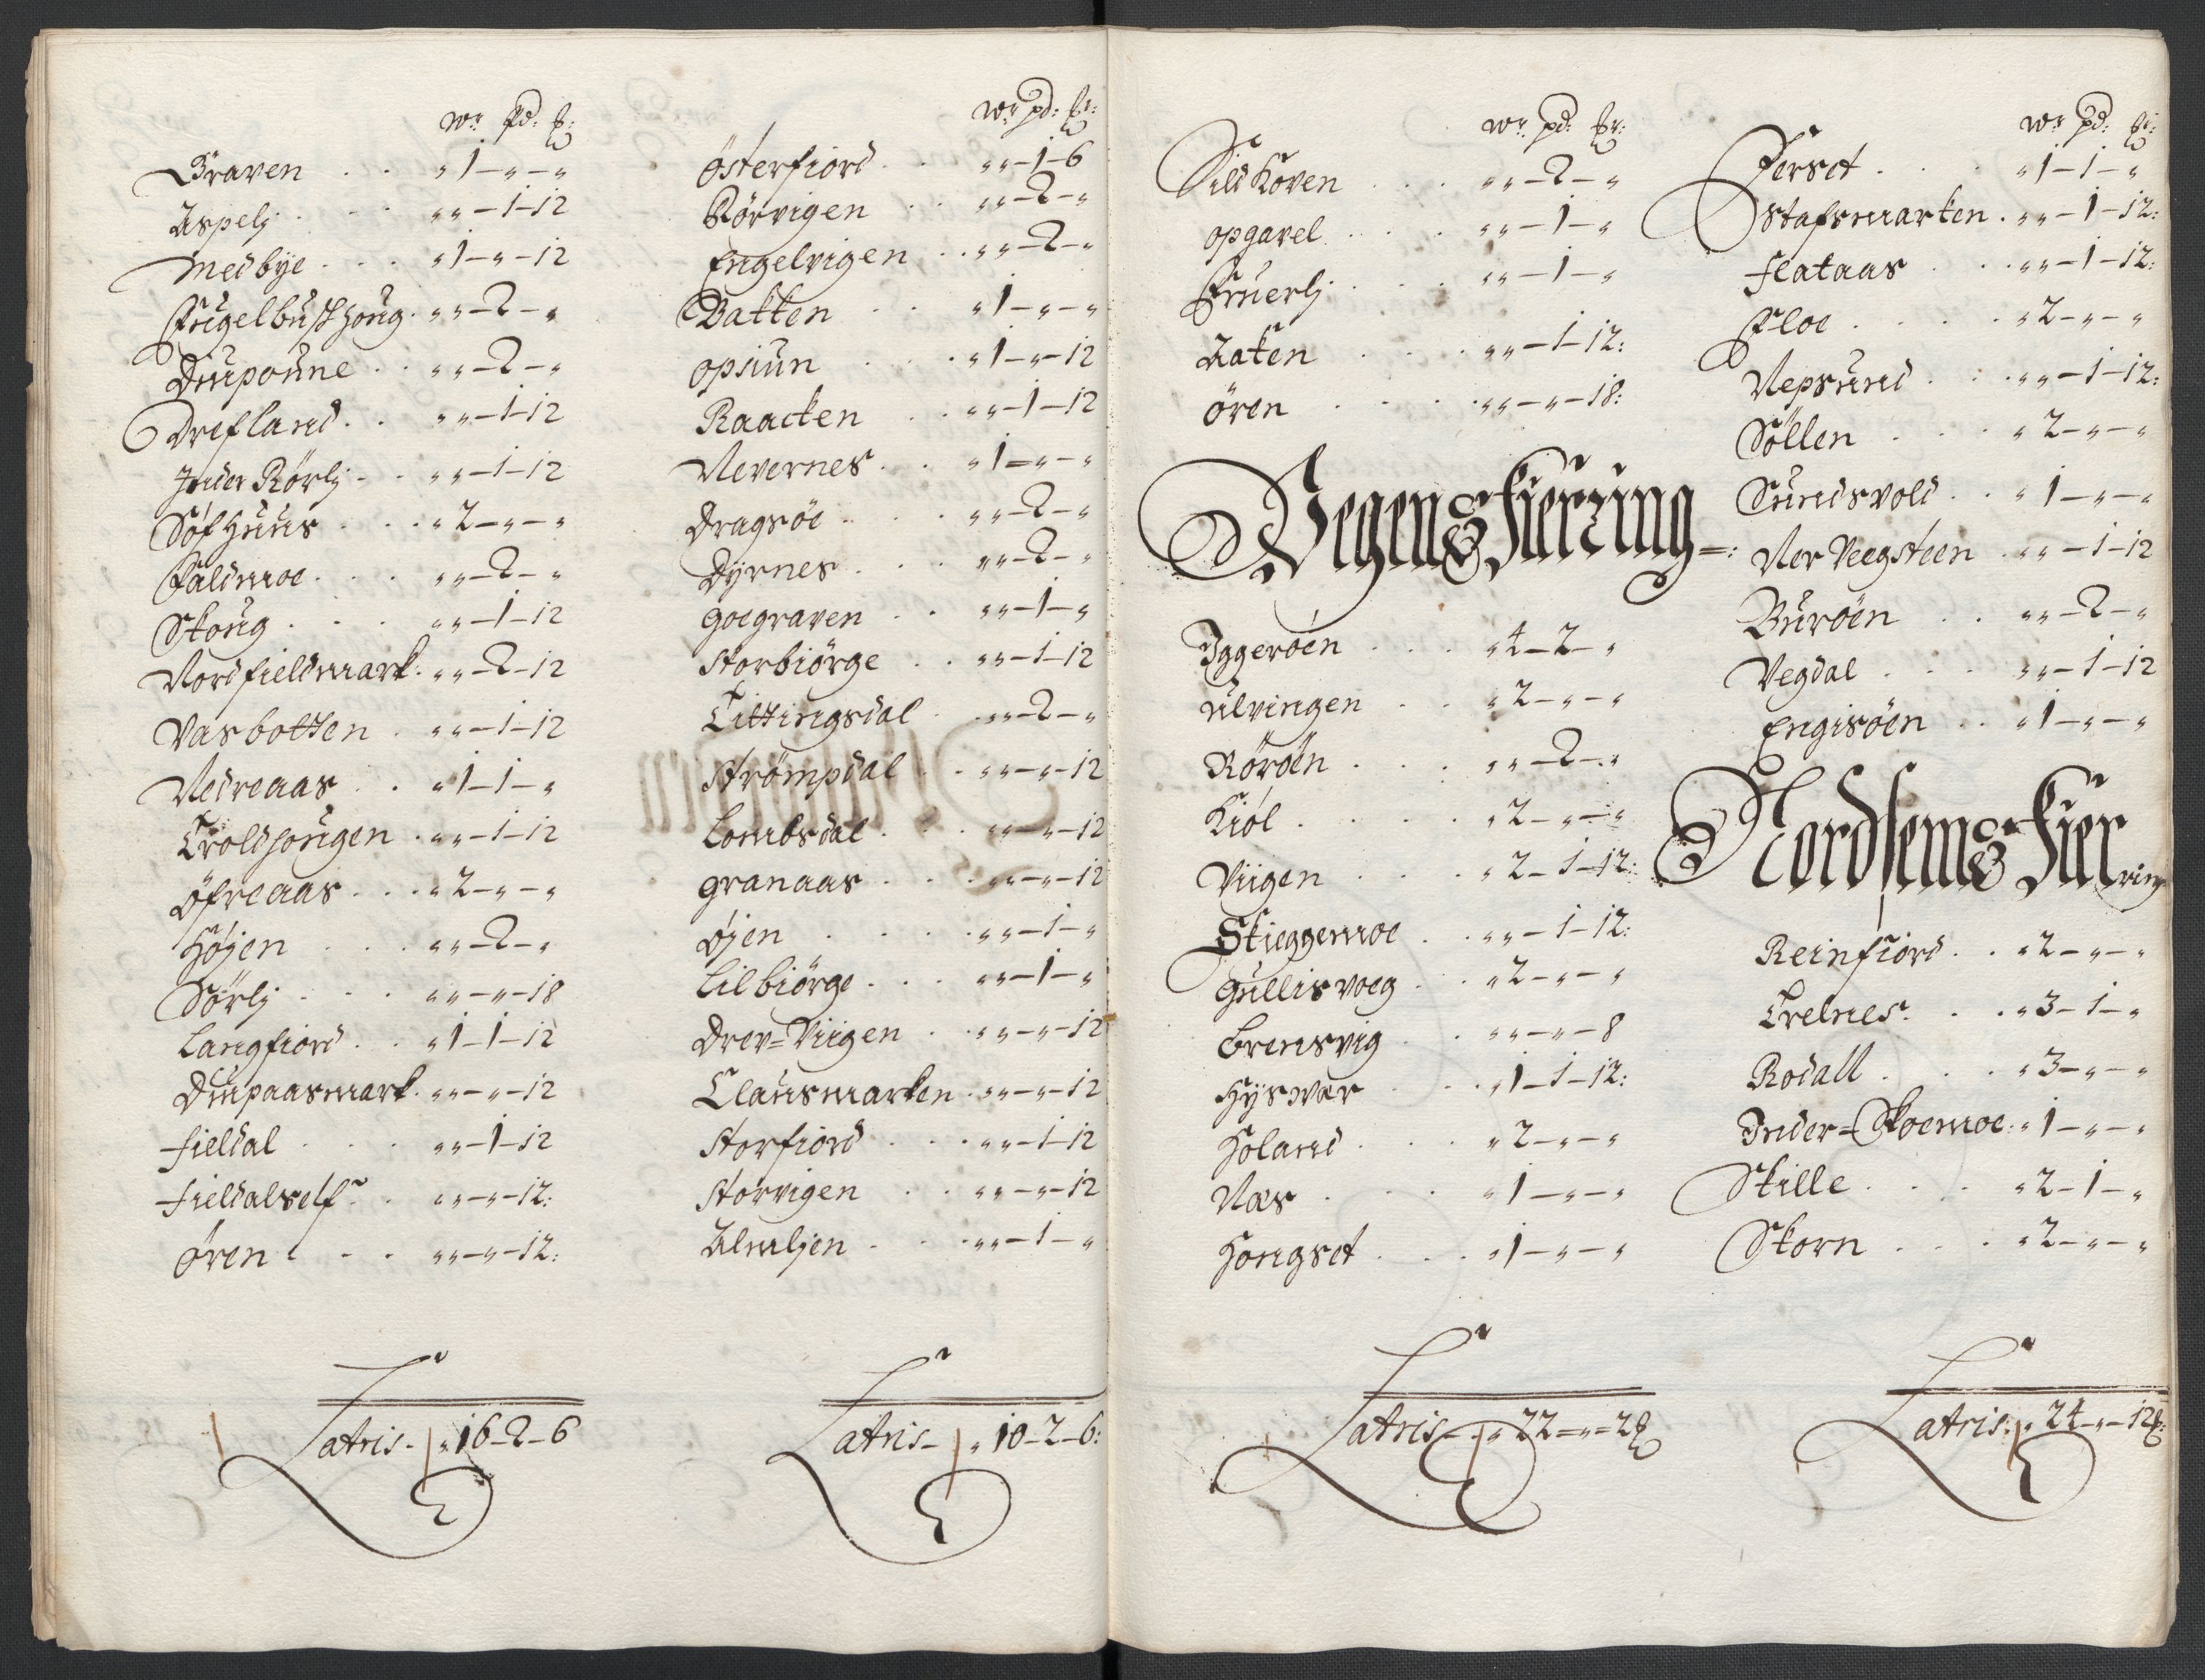 Wr pd: ℔:
Graven . . „ 1 - „ - „
Aspelj . . „ „ - 1 - 12
Medbye . . . „ 1 - „ - 12
Fugelbusthoug . „ „ - 2 - „
Dinpoune . . „ „ - 2 - „
Drefland . . „ „ - 1 - 12
Inder Rörlj - . „ „ - 1 - 12
Söfhuus . . . „ 2 - „ - „
Faldmoe . . . „ „ - 2 - „
Skoug . . . „ „ - 1 - 12
Nordfieldmark . „ „ - 2 - 12
Vasbotten . „ „ - 1 - 12
Nedreaas . . „ 1 - 1 - „
Troldhougen . „ „ - 1 - 12
Öfreaas . . . „ 2 - „ - „
Höjen . . . „ „ - 2 - „
Sörlj . . . „ „ - „ - 18
Langfiord . . „ 1 - 1 - 12
Dinpaasmark . „ „ - „ - 12
Fieldal . . . „ „ - 1 - 12
Fieldalself . . „ „ - „ - 12:
Ören . - . „ „ - „ - 12:
Latris - „ 16 - 2 - 6
Wr pd: ℔:
Österfiord . . „ „ - 1 - 6
Rörvigen . . „ „ - 2 - „
Engelvigen . . „ „ - 2 - „
Batten . . „ 1 - „ - „
Opsiun . . . „ 1 - „ - 12
Raacken . . „ „ - 1 - 12
Nevernes . . „ 1 - „ - „
Dragsöe . . . „ „ - 2 - „
Dyrnes . . . „ „ - 2 - „
Goegraven . . „ „ - 1 - „
Storbiörge . . „ „ - 1 - 12
Tittingsdal . „ „ - 2 - „
Strömpdal . . „ „ - „ - 12
Lombsdal . . . „ „ - „ - 12
Granaas . . . „ „ - „ - 12
Öjen . . . . „ „ - 1 - „
Lilbiörge . . . „ „ - 1 - „
Drev=Viigen . . „ „ - „ - 12
Clausmarken . „ „ - „ - 12
Storfiord . . . „ „ - 1 - 12
Storvigen . . „ „ - „ - 12
Almljen . . . „ „ - 1 - „
Latris - „ 10 - 2 - 6:
Wr pd: ℔:
Sildhoven . . . „ „ - 2 - „
Opgavel . . . „ „ - 1 - „
Fruerlj . . . „ „ - 1 - „
Aaken . . . „ „ - 1 - 12:
Ören . . . . „ „ - „ - 18:
Vegens Fierring =:
Iggeröen . . . „ 4 - 2 - „
Ulvingen . . „ 2 - „ - „
Röröen . . . „ „ - 2 - „
Kiöl . . . . „ 2 - „ - „
Viigen . . . „ 2 - 1 - 12:
Skieggemoe . . „ „ - 1 - 12:
Gullisvoeg . . „ 2 - „ - „
Bremsvig . . „ „ - „ - 8
Hysvær . . . „ 1 - 1 - 12:
Holand . . . „ 2 - „ - „
Næs . . . . „ 1 - „ - „
Hongset . . . „ 1 - „ - „
Latris - „ 22 = „ = 2 ℔
Wr pd: ℔:
Ferset . . . „ 1 - 1 - „
Stafsmarken . „ „ - 1 - 12:
Flataas . . . „ „ - 1 - 12:
Floe . . . . „ 2 - „ - „
Nepsund . . . „ „ - 1 - 12:
Söllen . . . „ 2 - „ - „
Sundsvold . . „ 1 - „ - „
Nor Veegsteen . „ „ - 1 - 12
Buröen . . „ „ - 2 - „
Vegdal . . . „ „ - 1 - 12
Engisöen . . „ 1 - „ - „
Nordlems Fierring
Reinfiord . . „ 2 - „ - „
Trelnes . . . „ 3 - 1 - „
Rodall . . . „ 3 - „ - „
Inder=Skoemoe . „ 1 - „ - „
Skille . . . „ 2 - 1 - „
Skorn . . . „ 2 - „ - „
Latris: „ 24 - „ - 12 ℔: